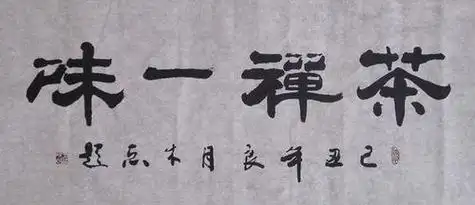 茶禪一味
己丑年良月題